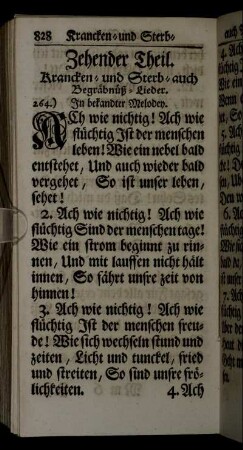 828 Krancken- und Sterb-
Zehender Theil.
Krancken- und Sterb- auch
Begräbnüß- Lieder.
264.) In bekandter Melodey.
ACh wie nichtig! Ach wie
flüchtig Ist der menschen
leben! Wie ein nebel bald
entstehet, Und auch wieder bald
vergehet, So ist unser leben,
sehet!
2. Ach wie nichtig! Ach wie
flüchtig Sind der menschen tage!
Wie ein strom beginnt zu rin-
nen, Und mit lauffen nicht hält
innen, So fährt unsre zeit von
hinnen!
3. Ach wie nichtig! Ach wie
flüchtig Ist der menschen freu-
de! Wie sich wechseln stund und
zeiten, Licht und tunckel, fried
und streiten, So sind unsre frö-
lichkeiten. 4. Ach